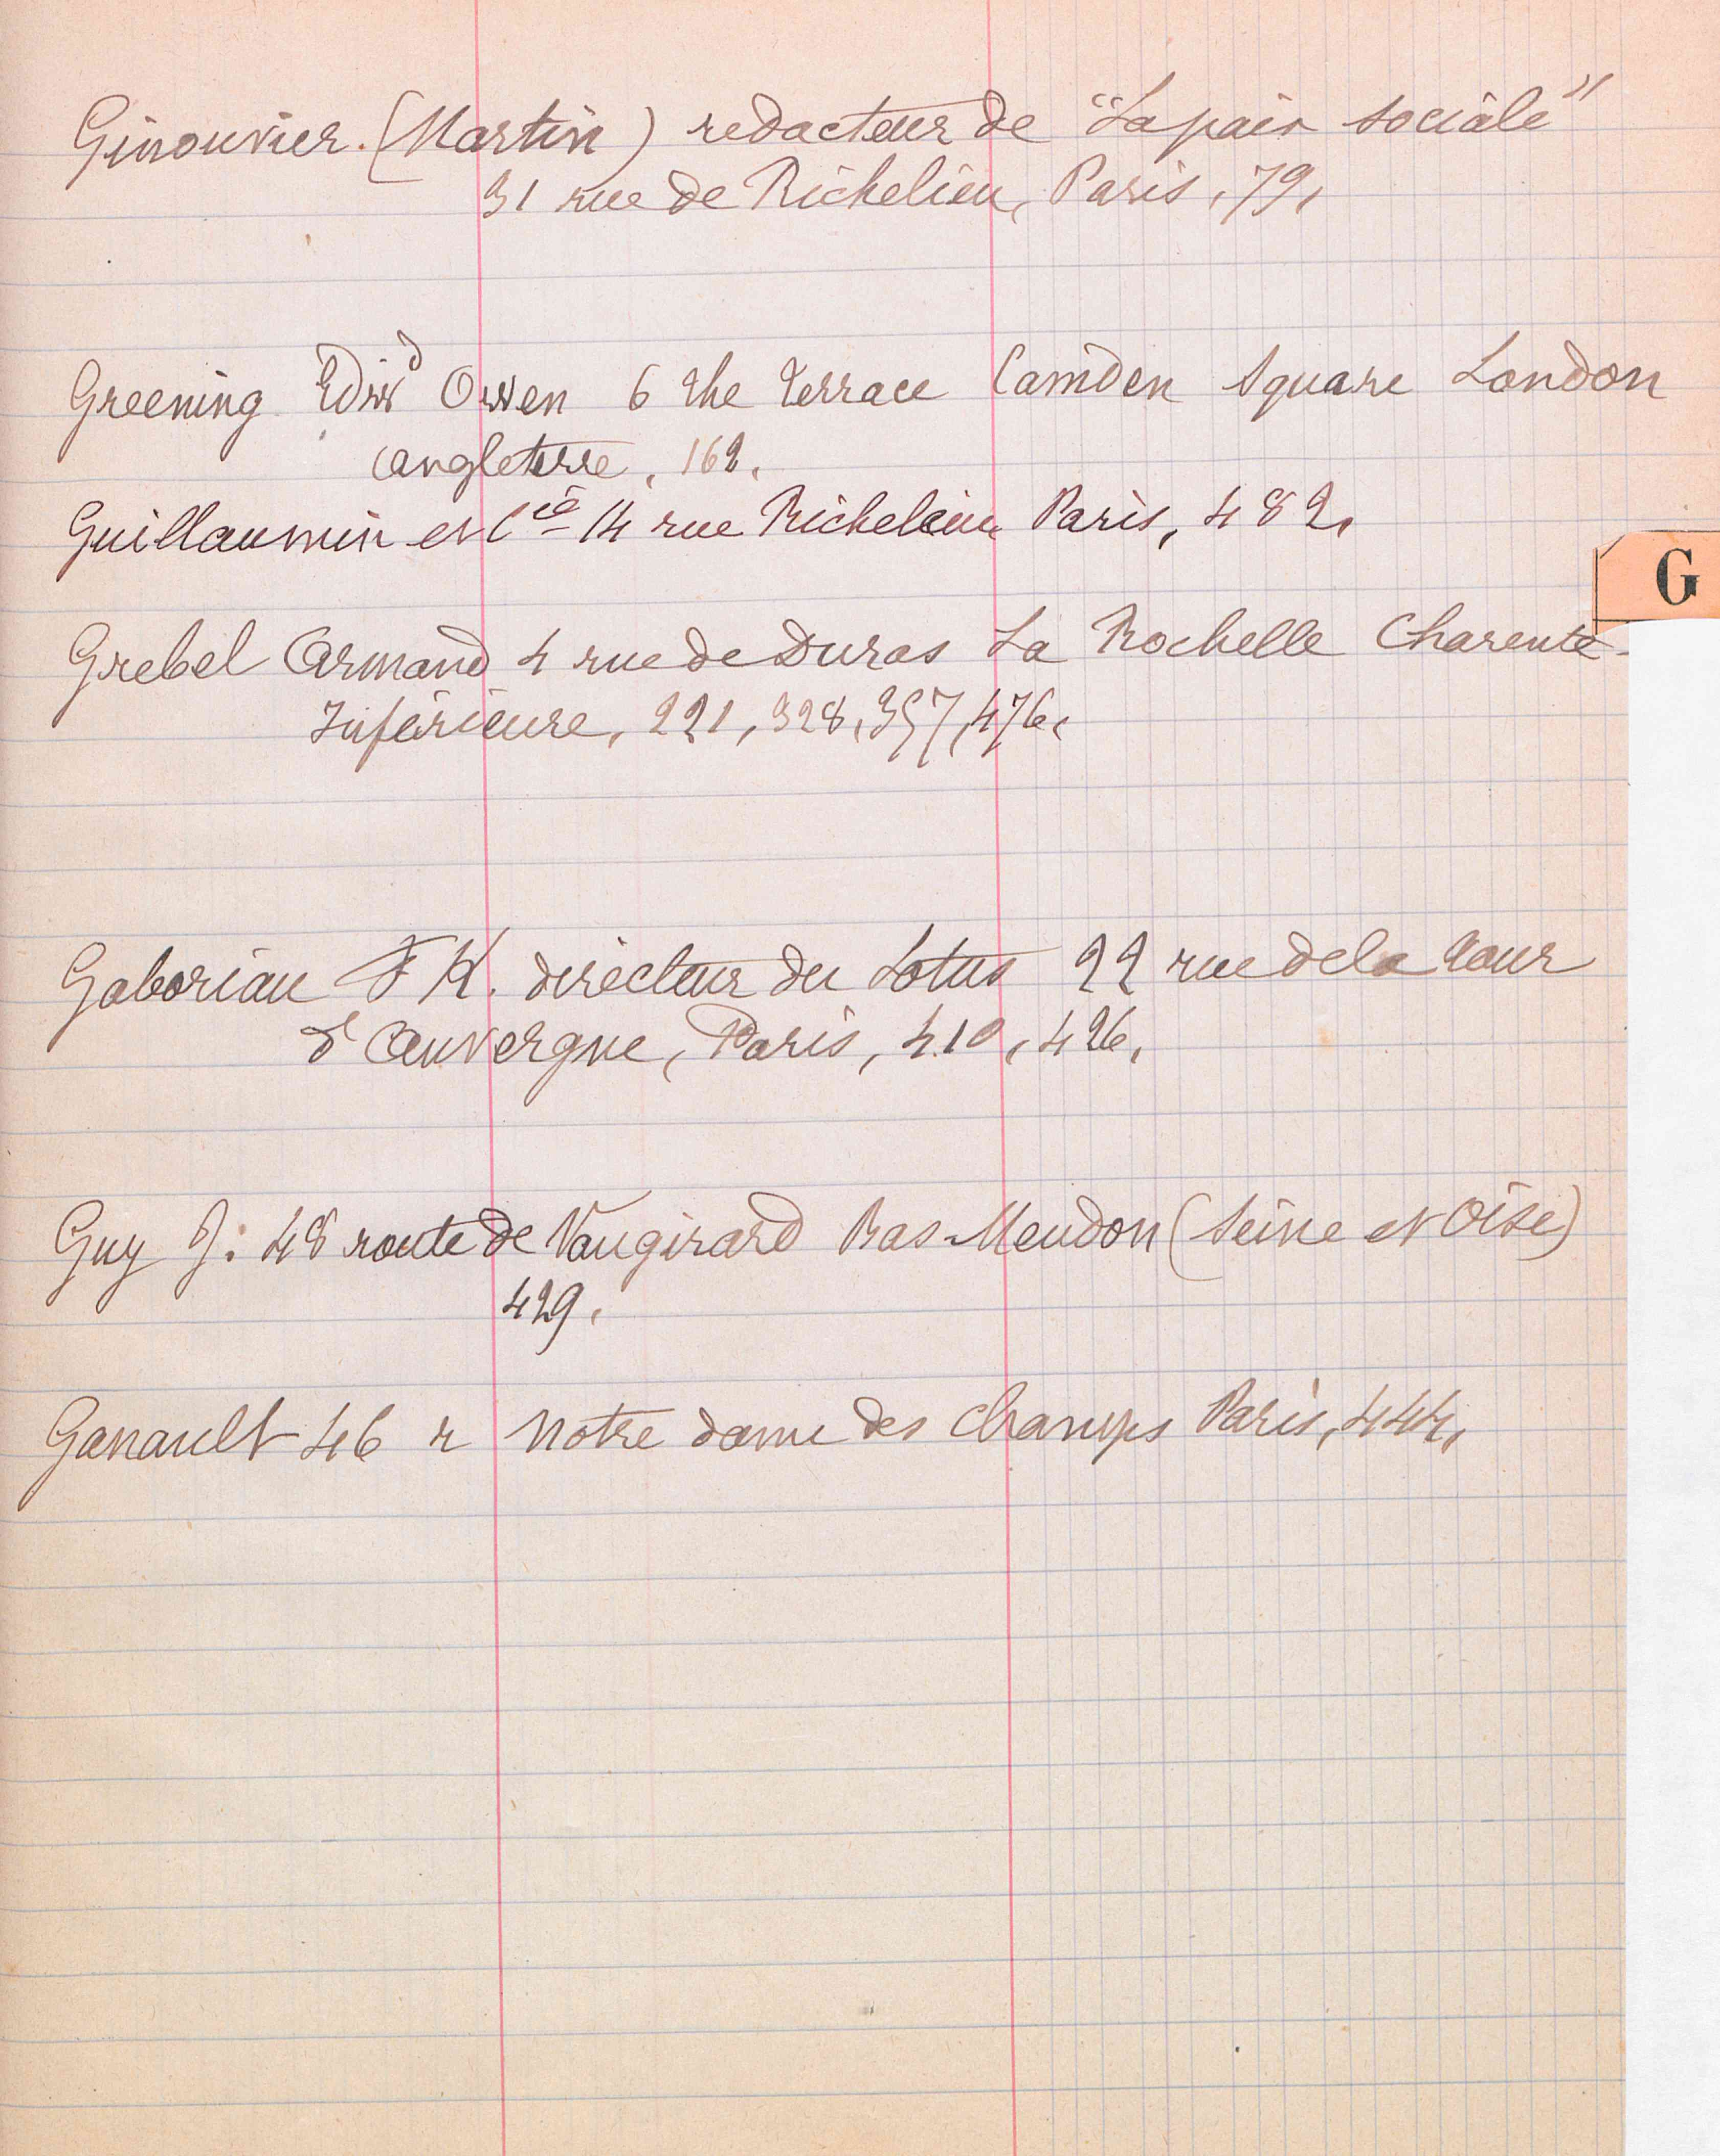 Ginouvier. (Martin) redacteur de "La paix sociale"
31 rue de Richelieu, Paris, 79,
Greening Edwd Owen 6 the terrace Camden Square London
Angleterre, 162,
Guillaumin et Cie 14 rue Richelieu Paris, 482,
G
Grebel Armand 4 rue de Duras La Rochelle Charente-
Inférieure, 221, 328, 357, 476,
Gaboriau F K. directeur du Lotus 22 rue de la Tour
d'Auvergne, Paris, 410, 426,
Guy J: 48 route de Vaugirard Bas-Meudon (Seine et Oise)
429,
Ganault 46 r Notre dame des champs Paris, 444,